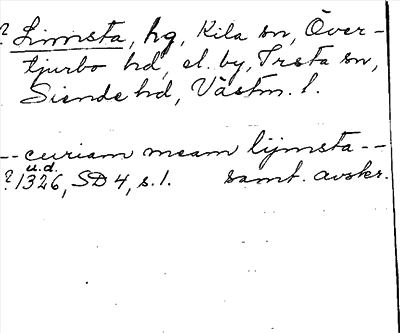 ? Limsta, hg, Kila sn, Över-
tjurbo hd, el. by, Irsta sn,
Siende hd, Västm. l.
-- curiam meam lijmsta --
u.d.
? 1326, SD 4, s. 1. samt. avskr.